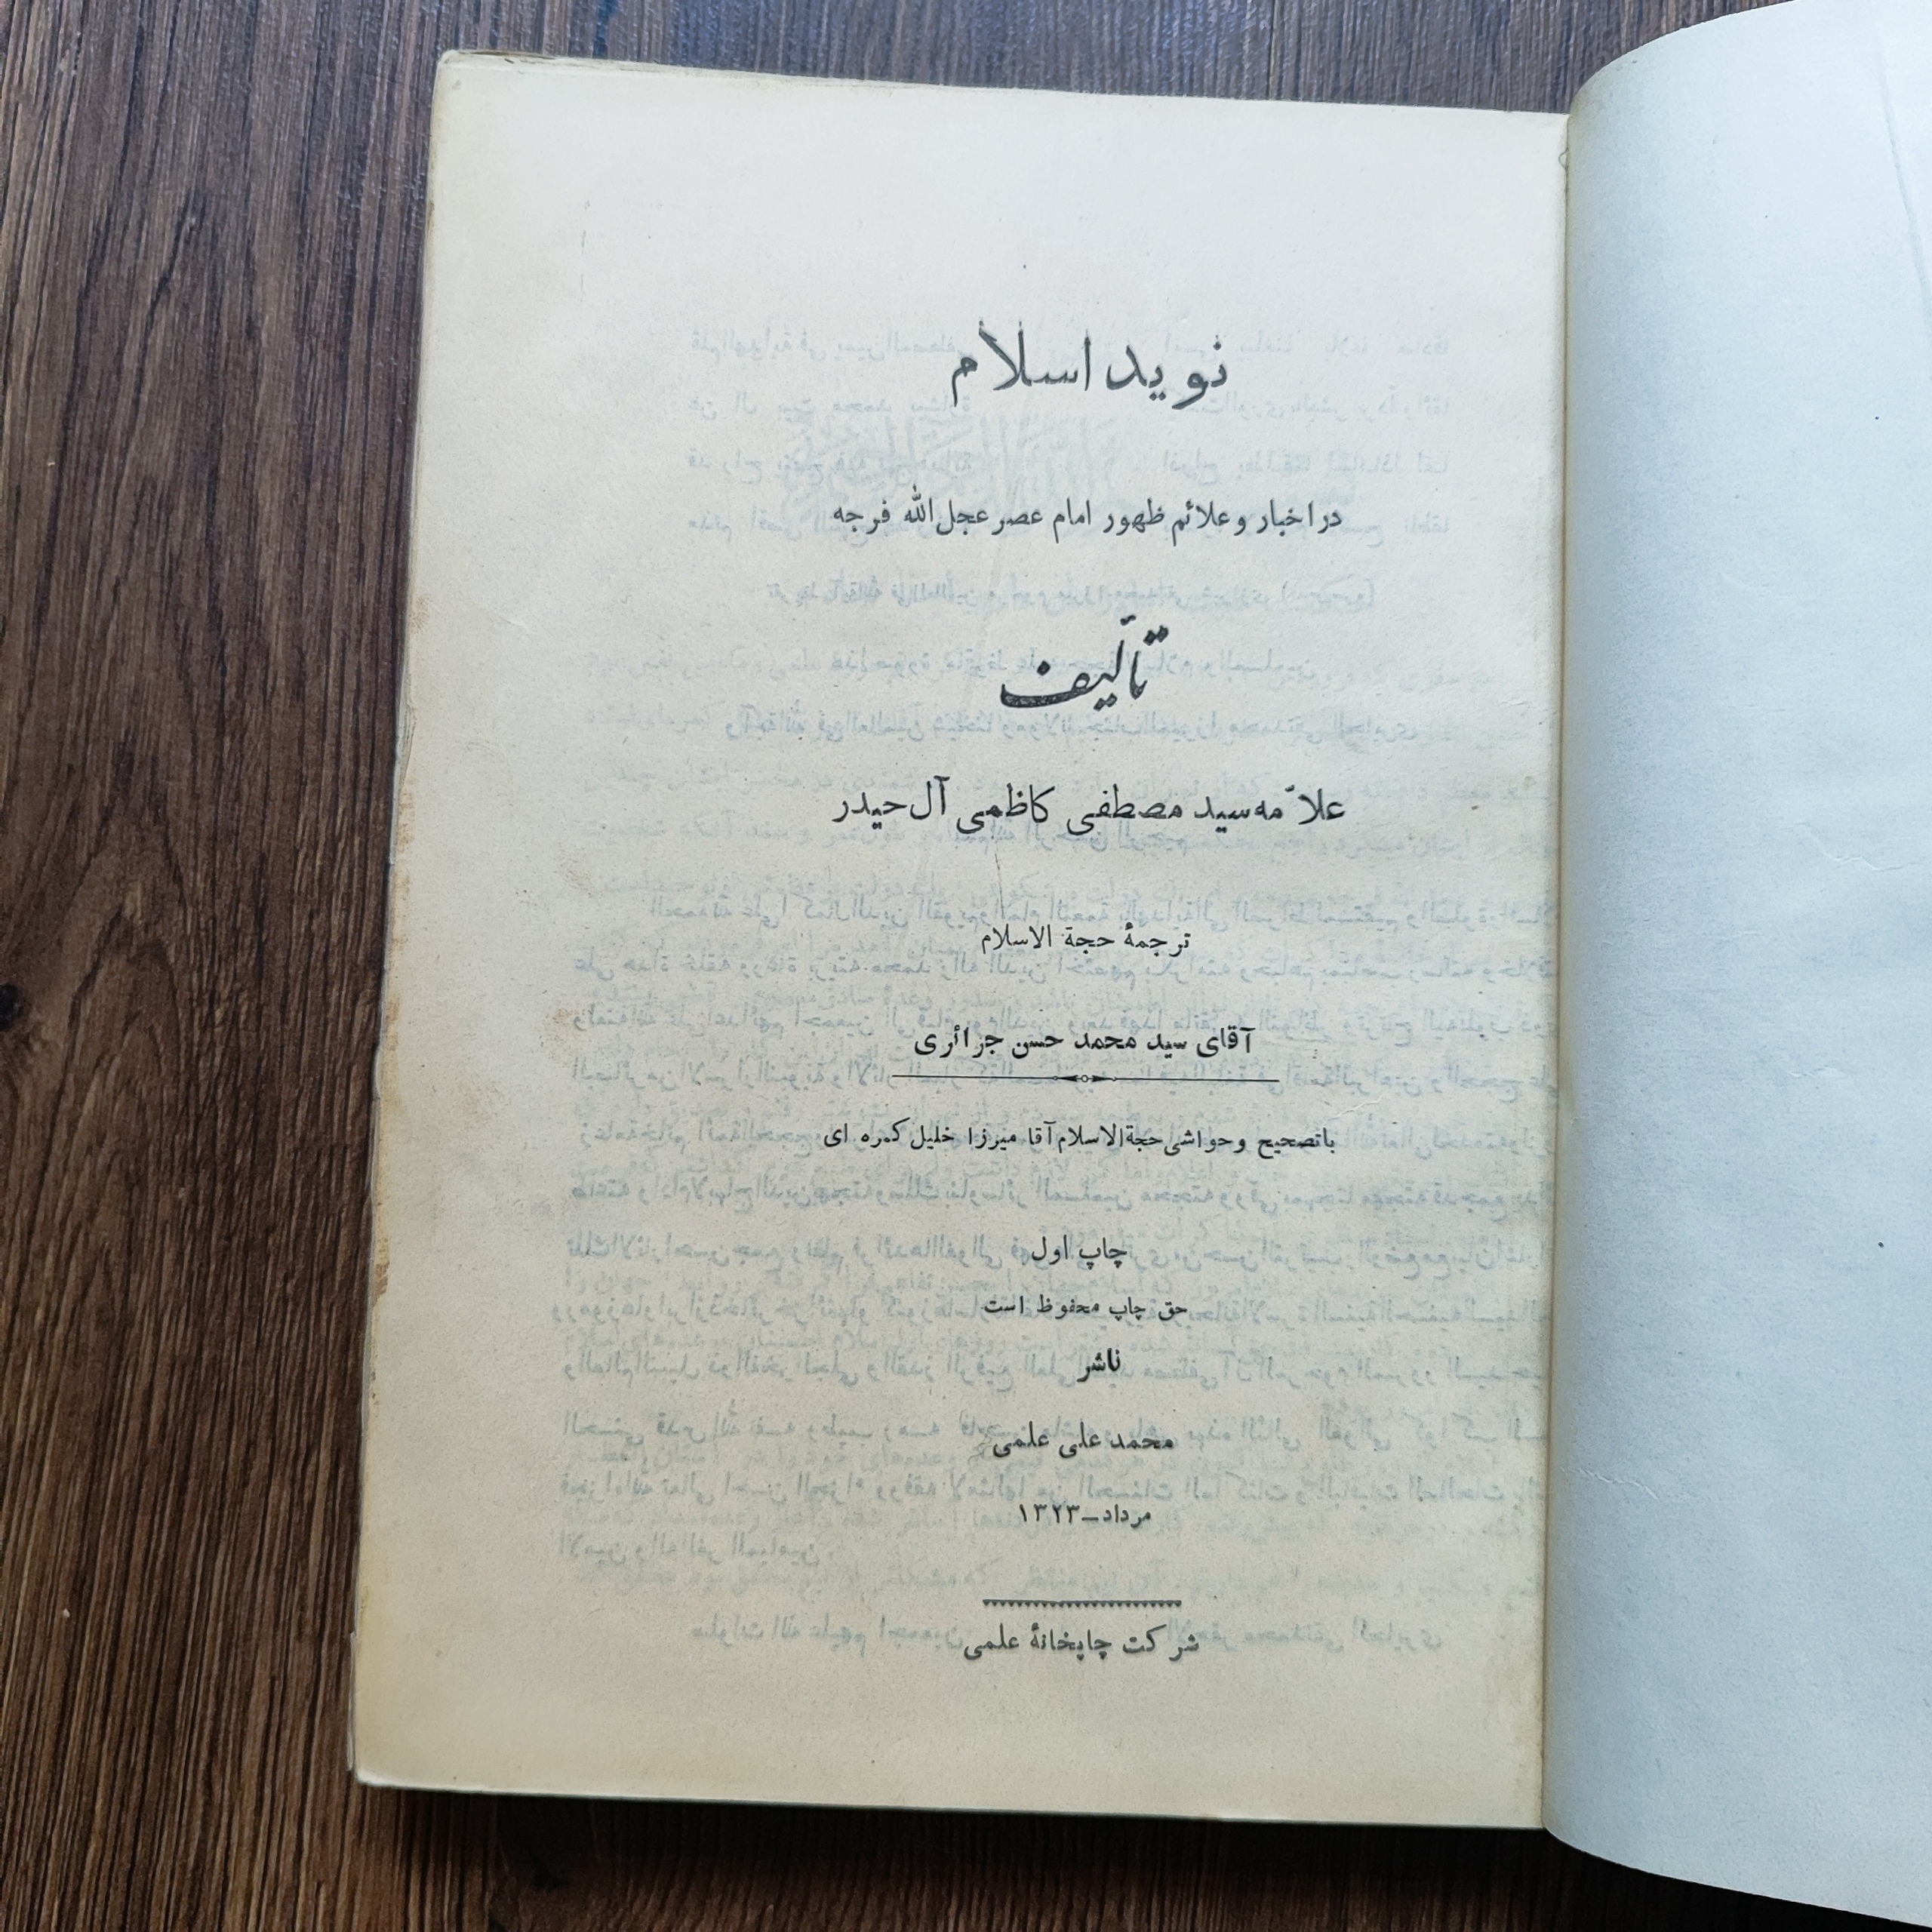 نوید اسلام
در اخبار و علائم ظهور امام عصر عجل الله فرجه
تألیف
علاّمه سید مصطفی کاظمی آل حیدر
ترجمهٔ حجة الاسلام
آقای سید محمد حسن جزائری
با تصحیح و حواشی حجة الاسلام آقا میرزا خلیل کمره ای
چاپ اول
حق چاپ محفوظ است
ناشر
محمد علی علمی
مرداد ـ ۱۳۲۳
شرکت چاپخانهٔ علمی